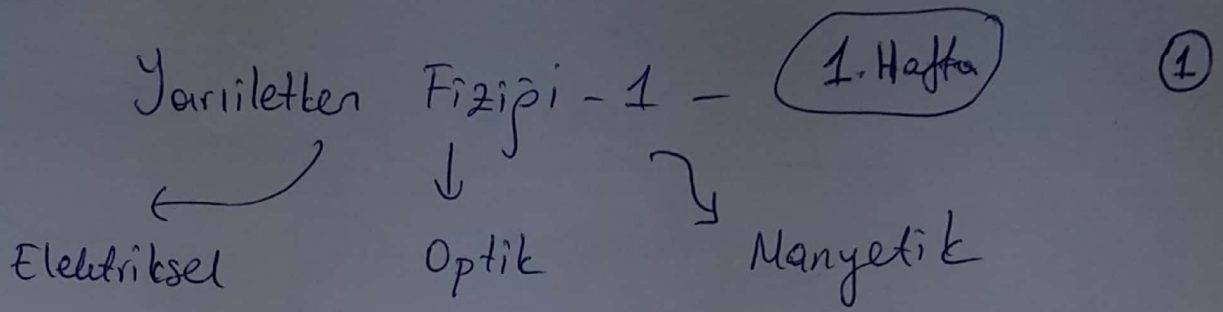 Yarıiletken Fiziği - 1 - 1. Hafta 1
Elektriksel Optik Manyetik